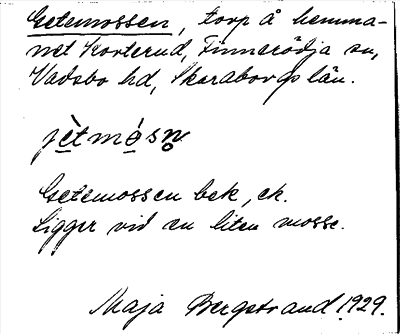 Getemossen, torp å hemma-
net Korterud, Finnerödja sn,
Vadsbo hd, Skaraborgs län.
jètmòsn̥
Getemossen bek, ek.
Ligger vid en liten mosse.
Maja Bergstrand 1929.